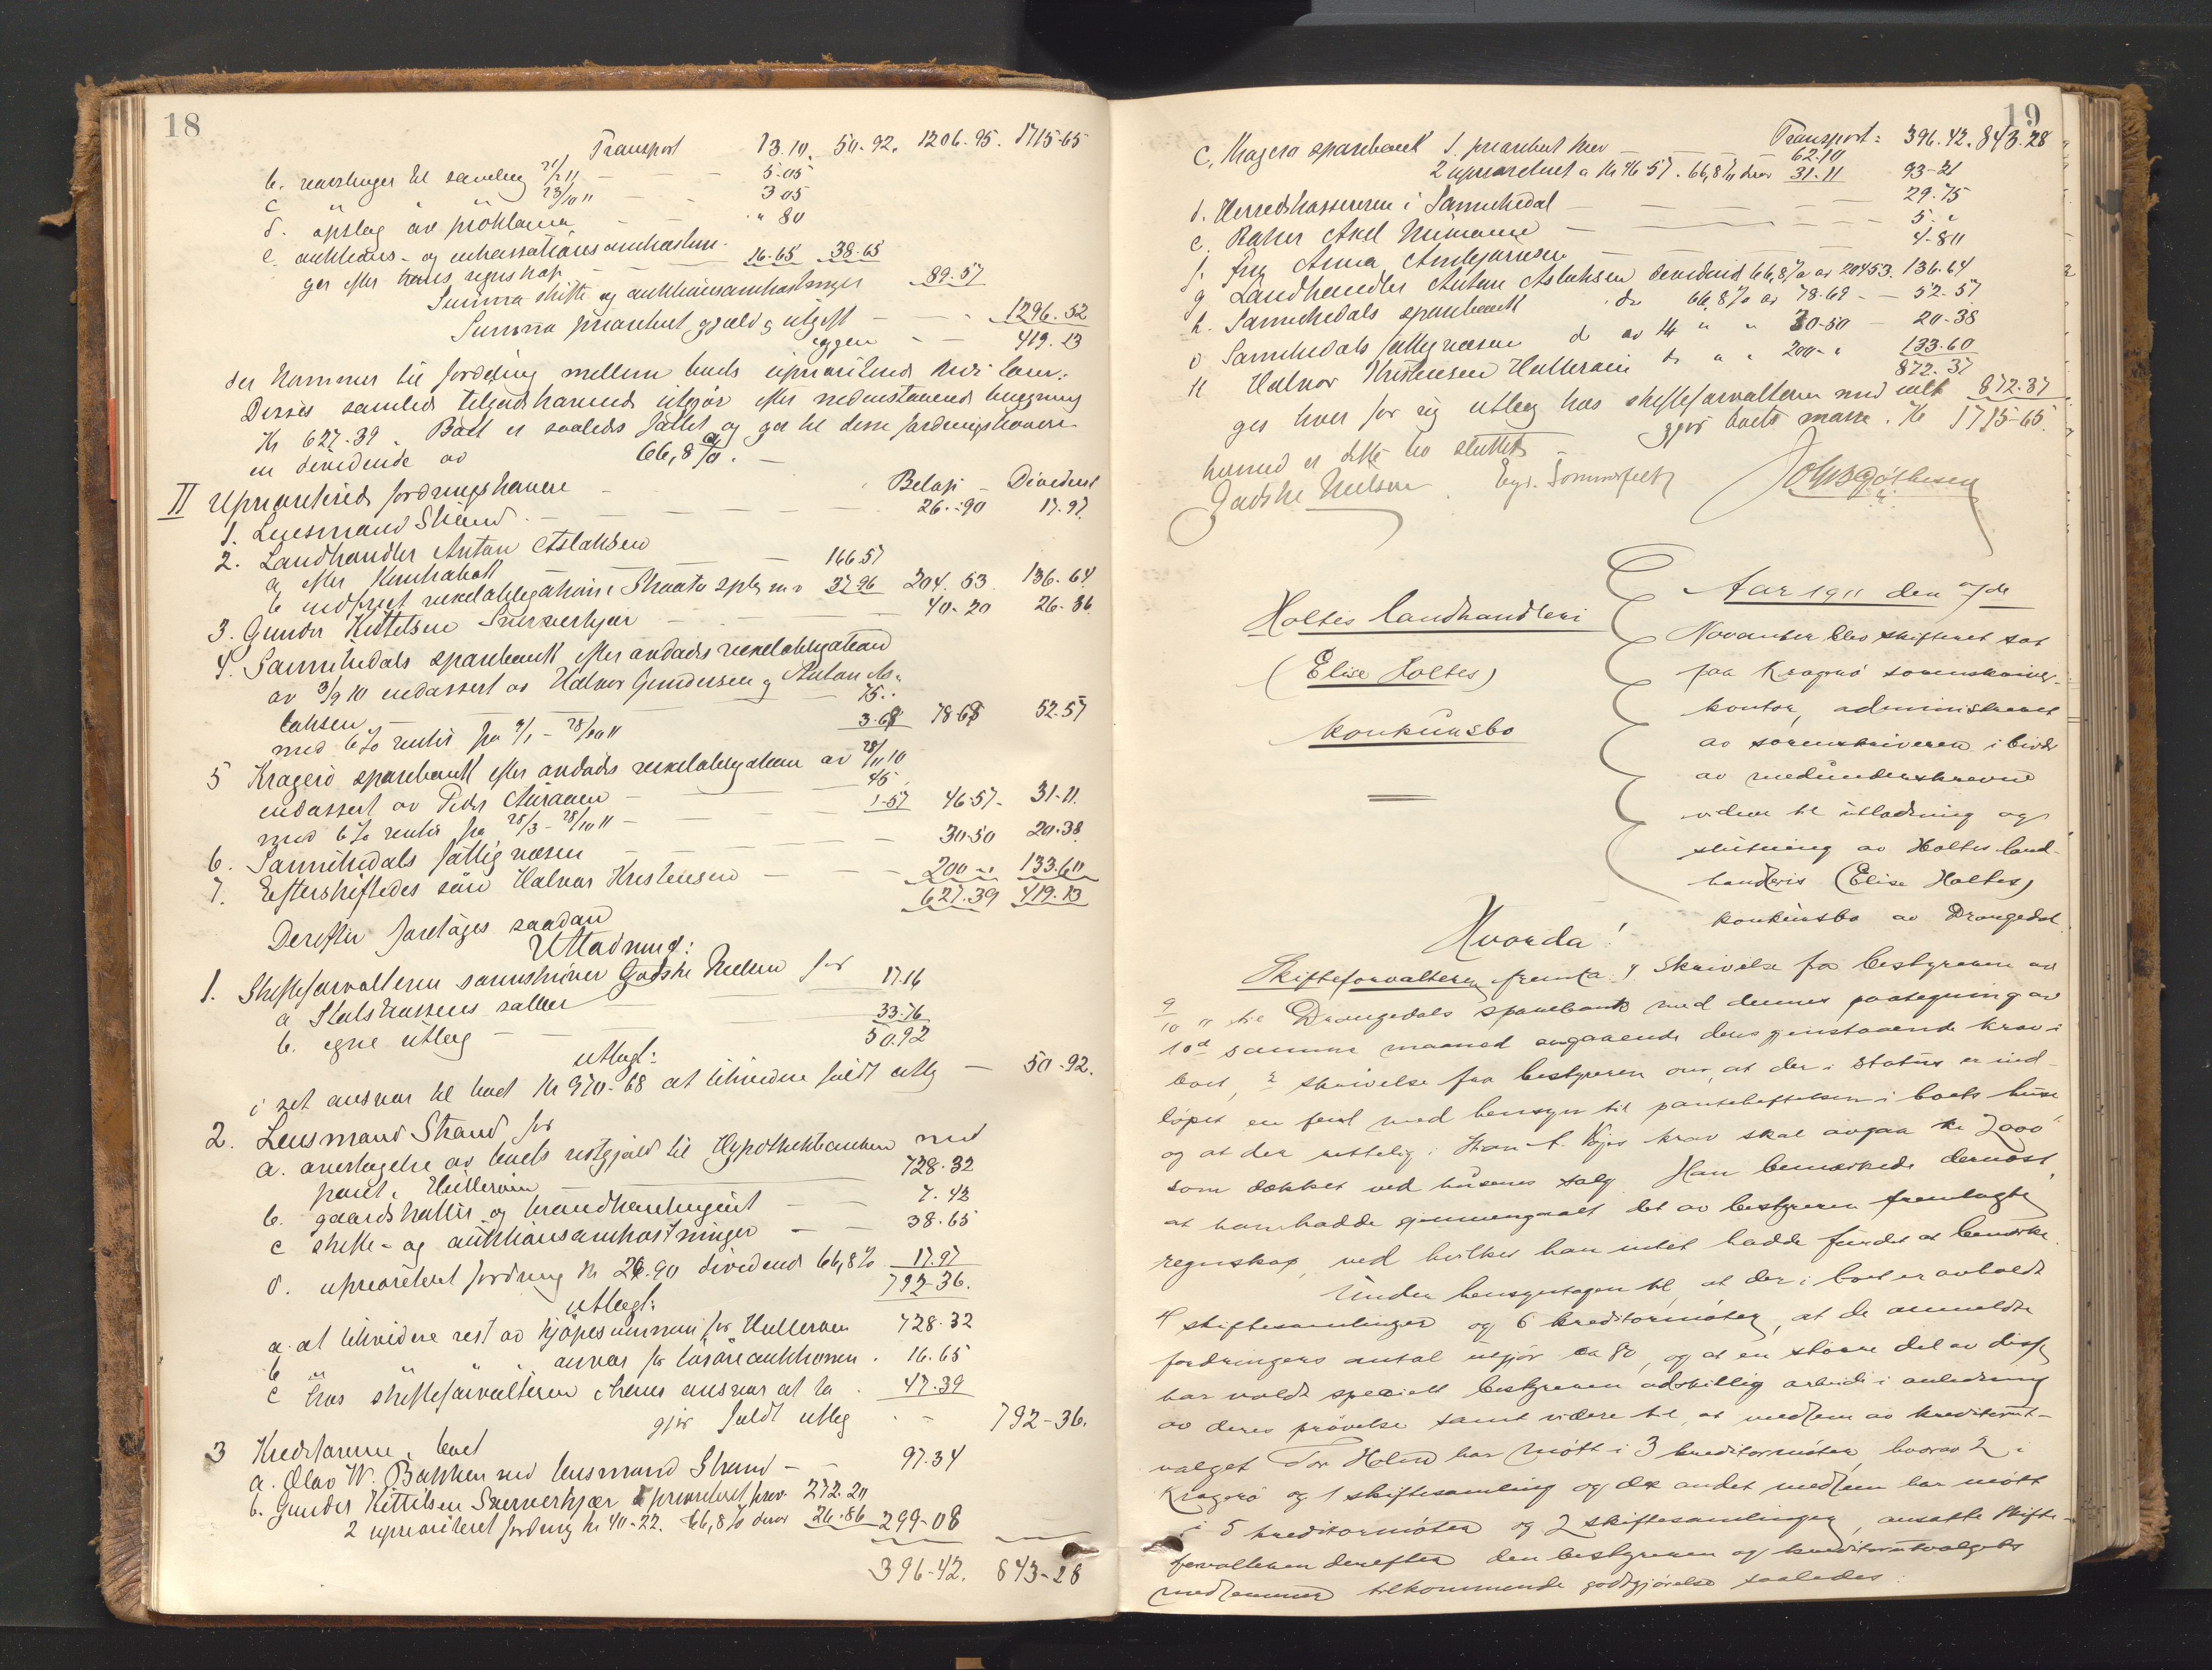 18
Transport 13.10. 50.92. 1206.95. 1715-65
b. reisepenger til samling 21/2 11 — 5.05
c " " 23/10 11 — 3 05
d. opslag av proklama — " 80
e auktions- og inkassationsomkostnin-
ger efter hans regnskap — 16.65 38.65
Summa skifte og auktionsomkostninger 89.57
Summa prioritert gjæld og utgift — 1296.52
igjen — 419.13
der kommer til fordeling mellem boets uprioriterte kreditorer.
Disses samlede tilgodehavende utgjør efter nedenstaaende
Kr 627.39. Boet er saaledes fallit og gir til disse fordringshavere
en dividende av 66,8 %.
II Uprioriterte fordringshavere Beløp – Dividende
1. Lensmand Strand — 26.90 17.97
2. Landhandler Anton Aslaksen
a efter kontrabok 166.57
b indfriet vekselobligation i Skaatø spbk m.v 37.96 204.53. 136.64
3. Gunder Kittelsen Snerverkjær — 40.20 26.86
4. Sannikedals sparebank efter andads vekselobligation
av 3/9 10 endossert av Halvor Gundersen og Anton As-
laksen — 75..
med 6 % renter fra 9/1 - 28/10 11 3.68 78.68 52.57
5 Kragerø sparebank efter andads vekselobligation av 28/11 10
endossert av Peder Aaraaen — 45
med 6 % renter fra 28/3 - 28/10 11 — 1.57 46.57. 31.11.
6. Sannikedals fattigvæsen — 30.50 20.38
7. Efterskiftedes søn Halvor Kristensen — 200.. 133.60
627.39 419.13
Derefter foretages saadan
Utlodning:
1. Skifteforvalteren sorenskriver Gadske Nielsen for
a Statskassens salær 17.16
b. egne utlæg — 33.76
50.92
utlagt:
i ret ansvar til boet kr 970.68 at likvidere fuldt utlæg — 50-92.
2. Lensmand Strand for
a. overtagelse av boets restgjæld til Hypothekbanken med
pant i Hulleraen 728.32
b. gaardskatter og brandkontingent — 7.42
c skifte- og auktionsomkostninger — 38.65
d. uprioritert fordring kr 26.90 dividende 66,8 % 17.97
792-36.
utlagt:
a. at likvidere rest av kjøpesummen for Hulleraen 728.32
b " " " ansvar for løsøreauktionen. 16.65
c hos skifteforvalteren i hans ansvar at ta . 47.39
gjør fuldt utlæg — 792-36.
3 Kreditorerne i boet
a. Olav W. Bakken ved lensmand Strand — 97.34
b. Gunder Kittilsen Snerverkjær 1 prioritert krav 272.20
2 uprioritert fordring kr 40.22. 66,8 % derav 26.86 299-08
396-42. 843-28
19
Transport: 396.42. 843.28
c. Kragerø sparebank 1. prioritert krav — 62.10
2 uprioritert a kr 46.57. 66,8 % derav 31.11 93-21
d. Herredskassereren i Sannikedal — 29.75
e. Baker Axel Neimann — 5."
f. Frk Anna Ambjørnsen — 4.80
g Landhandler Anton Aslaksen dividende 66,8 % av 204 53. 136.64
h. Sannikedals sparebank do 66,8 % av 78.69 — 52.57
i Sannikedals fattigvæsen do av kr " " 30-50 — 20-38
k Halvor Kristensen Hulleraen do " " 200-" 133.60
872.37
gis hver for sig utlæg hos skifteforvalteren med ialt 872.37
gjør boets masse. Kr 1715-65.
hermed er dette bo sluttet
Gadske Nielsen. Eyv. Sommerfelt
Holtes landhandleri
(Elise Holtes)
konkursbo
Aar 1911 den 7de
November blev skifteret sat
paa Kragerø sorenskriver-
kontor, administreret
av sorenskriveren i bivær
av medunderskrevne
vidner til utlodning og
slutning av Holtes land-
handleris (Elise Holtes)
konkursbo av Drangedal.
Hvorda!
Skifteforvalteren fremla: 1 Skrivelse fra bestyreren av
9/10 11 til Drangedals sparebank med dennes paategning av
10d samme maaned angaaende dens gjenstaaende krav i
boet, 2 skrivelse fra bestyreren om, at der i status er ind-
løpet en feil med hensyn til pantehæftelsen i boets huse
og at der rettelig i krav skal avgaa kr 2000"
som dækket ved husenes salg. Han bemerkede dernæst,
at han hadde gjennemgaat det av bestyreren fremlagte
regnskap, ved hvilket han intet hadde fundet at bemerke.
Under hensyntagen til, at der i boet er avholdt
4 skiftesamlinger og 6 kreditormøter, at de anmeldte
fordringers antal utgjør ca 80, og at en større del av disse
har voldt specielt bestyreren adskillig arbeide i anledning
av deres prøvelse samt videre til, at medlem av kreditorut-
valget Tor Holm har møtt i 3 kreditormøter, hvorav 2 i
Kragerø og 1 skiftesamling og det andet medlem har møtt
i 5 kreditormøter og 2 skiftesamlinger, ansatte skifte-
forvalteren derefter den bestyreren og kreditorutvalgets
medlemmer tilkommende godtgjørelse saaledes: